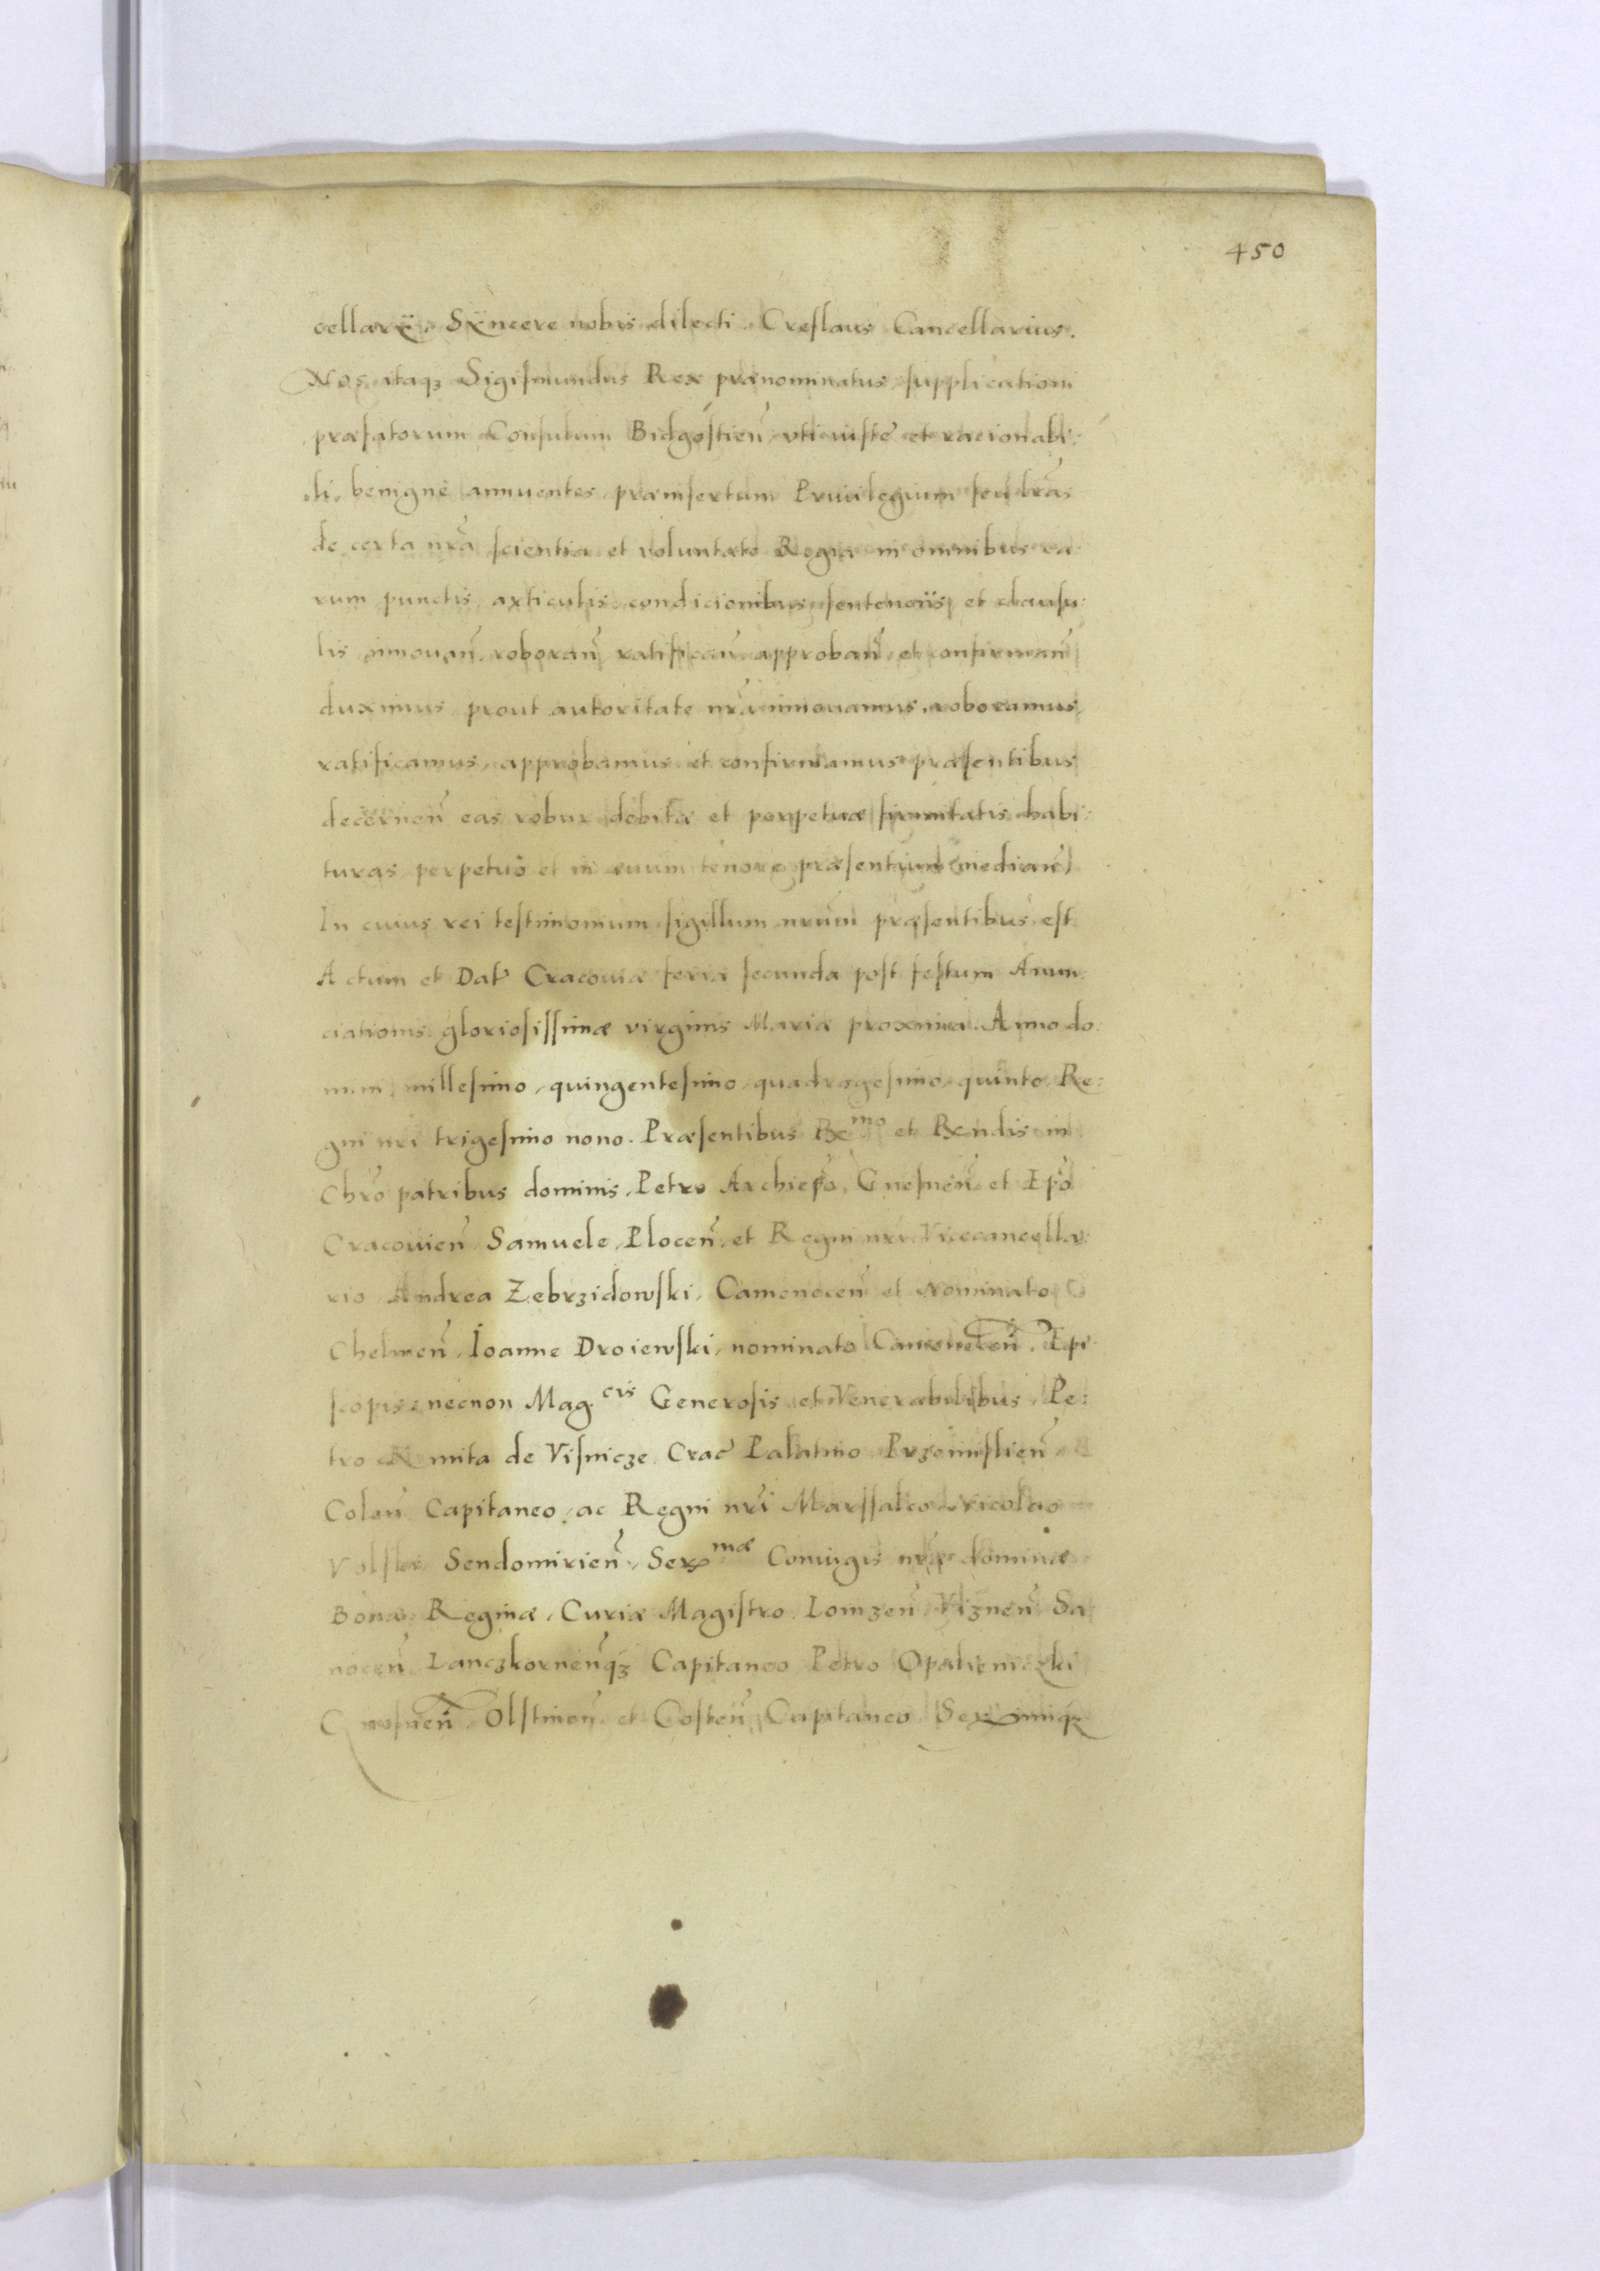 450
cellarÿ. Sÿncere nobis dilecti. Creslaus Cancellarius.
Nos itaqꝫ Sigiſmundus Rex prænominatus, ſupplicationi
præfatorum Conſulum Bidgóſtieñ, vti iuſtę et racionabi:
li, benignè annuentes, præinſertum Priuilegium ſeu lr̃as
de certa nr̃a ſcientia et voluntate Regia in omnibus ea:
rum punctis, articulis, condicionibus, ſentenciis, et clauſu:
lis innouañ, roborañ, ratificañ, approbañ, et confirmañ
duximus, prout autoritate nr̃a innouamus, roboramus,
ratificamus, approbamus et confirmamus præſentibus
decerneñ eas robur debitæ et perpetuæ firmitatis habi:
turas perpetuò et in æuum tenore præſentium mediañ)
In cuius rei teſtimonium ſigillum nr̃um præſentibus eſt
Actum et Dat̃ Cracouiæ feria ſecunda poſt feſtum Annun:
ciationis glorioſiſſimæ virginis Mariæ proxima. Anno do:
mini, milleſimo, quingenteſimo, quadrageſimo, quinto, Re:
gni nr̃i trigeſimo nono. Præſentibus Rx̃mo et Rx̃ndis in
Chr̃o patribus dominis, Petro Archiep̃o, Gneſneñ, et Ep̃o
Cracouieñ, Samuele, Ploceñ, et Regni nr̃i Vicecancella:
rio, Andrea Zebrzidowſki, Cameneceñ et Nominato
Chelmeñ, Ioanne Droiewſki, nominato Cameneceñ, Epi:
ſcopis, necnon Mag.cis Generoſis et Venerabilibus, Pe:
tro Kmita de Viſnicze, Crac̃ Palatino, Przemiſlieñ
Coleñ Capitaneo, ac Regni nr̃i Marſſalco, Nicolao
Volſki Sendomirieñ, Sermæ Coniugis nr̃æ dominæ
Bonæ, Reginæ, Curiæ Magiſtro, Lomzeñ, Vizneñ, Sa
noceñ, Lanczkorneñqꝫ Capitaneo, Petro Opalieniczki
Gneſneñ, Olſtineñ, et Coſteñ, Capitaneo, Ser.